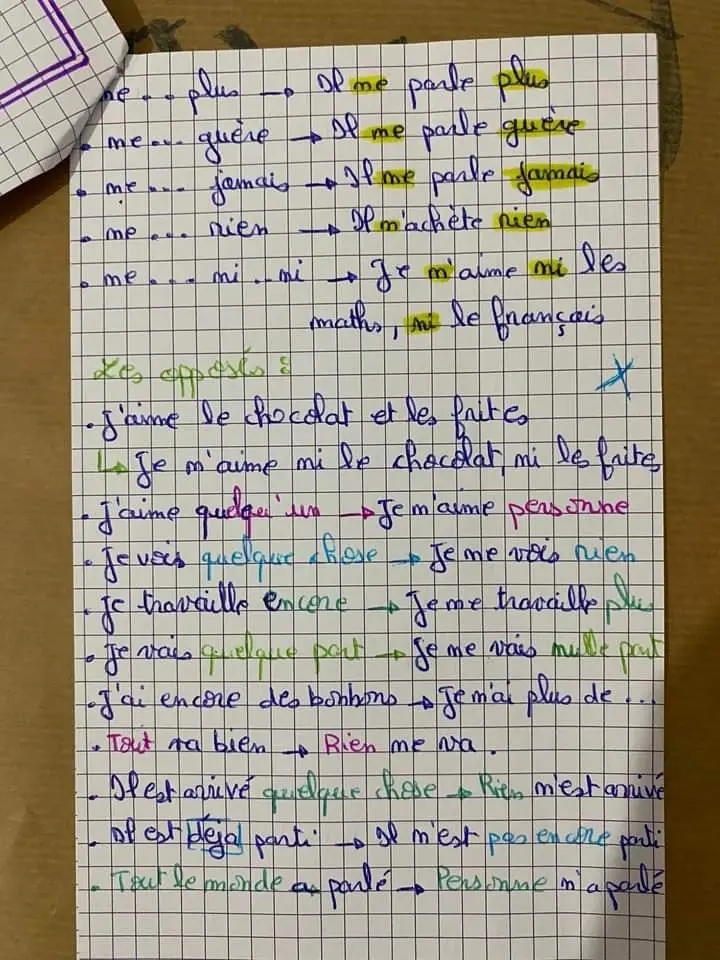 ne ... plus → Il ne parle plus
• ne ... guère → Il ne parle guère
• ne ... jamais → Il ne parle jamais
• ne ... rien → Il n'achète rien
• ne ... ni .. ni → Je n'aime ni les
maths, ni le français
Les opposés :
• J'aime le chocolat et les frites
↳ Je n'aime ni le chocolat, ni les frites
• J'aime quelqu'un → Je n'aime personne
• Je vois quelque chose → Je ne vois rien
• Je travaille encore → Je ne travaille plus
• Je vais quelque part → Je ne vais nulle part
• J'ai encore des bonbons → Je n'ai plus de ...
• Tout va bien → Rien ne va.
• Il est arrivé quelque chose → Rien n'est arrivé
• Il est déjà parti → Il n'est pas encore parti
• Tout le monde a parlé → Personne n'a parlé